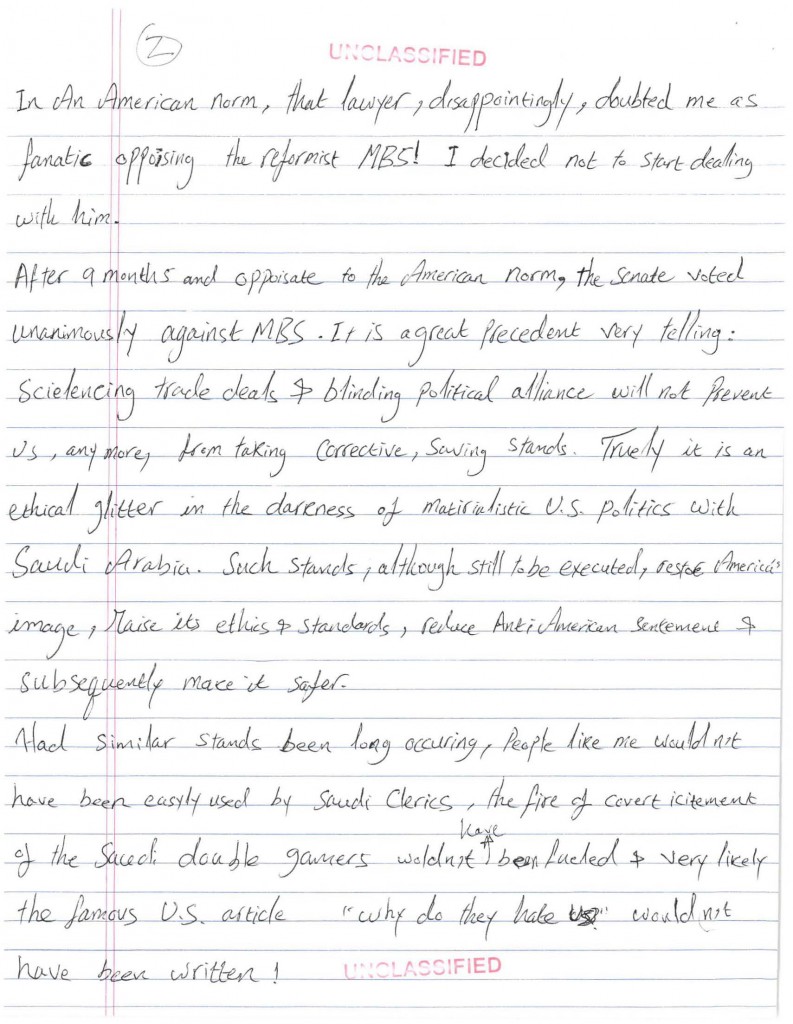 2
UNCLASSIFIED
In An American norm, that lawyer, disappointingly, doubted me as
fanatic oppoising the reformist MBS! I decided not to start dealing
with him.
After 9 months and oppoisate to the American norm, the Senate voted
unanimously against MBS. It is a great Precedent very telling:
Scielencing trade deals & blinding political alliance will not Prevent
Us, any more, from taking Corrective, Saving Stands. Truely it is an
ethical glitter in the darkness of matirialistic U.S. Politics with
Saudi Arabia. Such stands, although still to be executed, restoe America's
image, Raise its ethics & standards, reduce Anti American Sentement &
subsequently make it safer.
Had similar stands been long occuring, People like me would not
have been easyly used by Saudi Clerics, the fire of covert icitement
have
of the Saudi double gamers woldn't been fueled & very likely
the famous U.S. article "why do they hate us?" would not
have been written!
UNCLASSIFIED